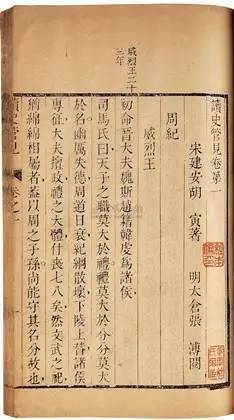 讀史管見卷第一
宋建安胡寅著 明太倉張溥閱
周紀
威烈王
威烈王二十三年
初命晉大夫魏斯趙籍韓虔爲諸侯
司馬氏曰天子之職莫大於禮禮莫大於分分莫大
於名幽厲失德周道日衰紀綱散壞下陵上替諸侯
專征大夫擅政禮之大體什喪七八矣然文武之祀
猶綿綿相屬者蓋以周之子孫尚能守其名分故也
讀史管見 卷之一